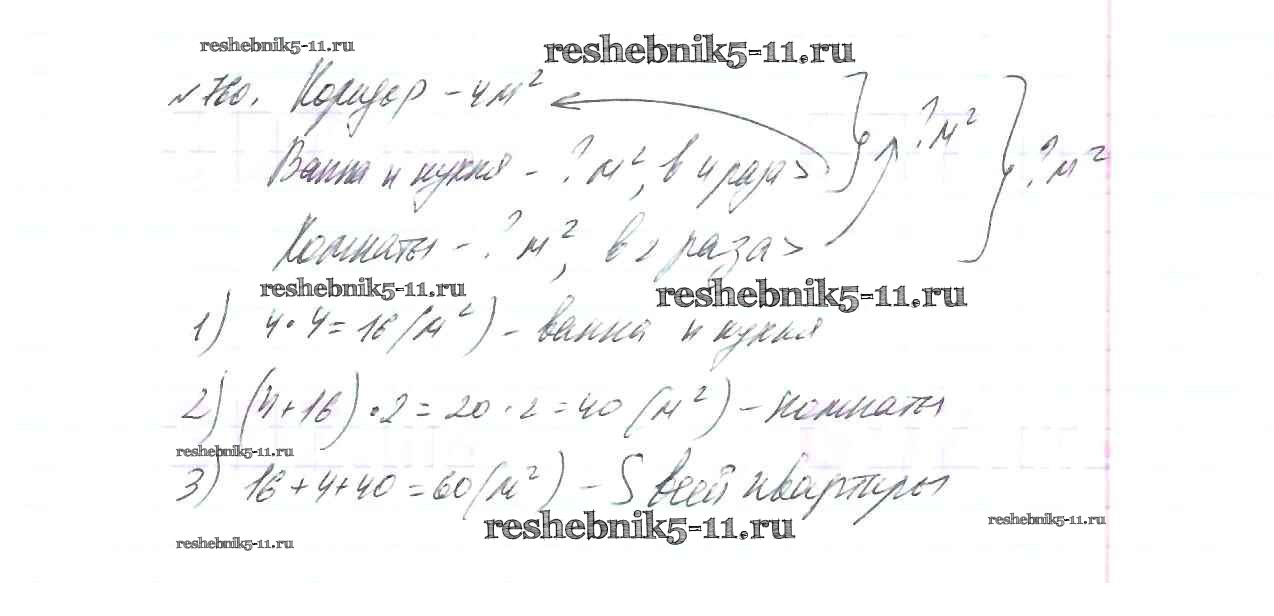 reshebnik5-11.ru
reshebnik5-11.ru
№760. Коридор - 4 м²
Ванна и кухня - ? м², в 4 раза >
? м²
? м²
Комнаты - ? м², в 2 раза >
reshebnik5-11.ru
reshebnik5-11.ru
1) 4·4=16 (м²) - ванна и кухня
2) (4+16)·2=20·2=40 (м²) - комнаты
reshebnik5-11.ru
3) 16+4+40=60 (м²) - S всей квартиры
reshebnik5-11.ru
reshebnik5-11.ru
reshebnik5-11.ru